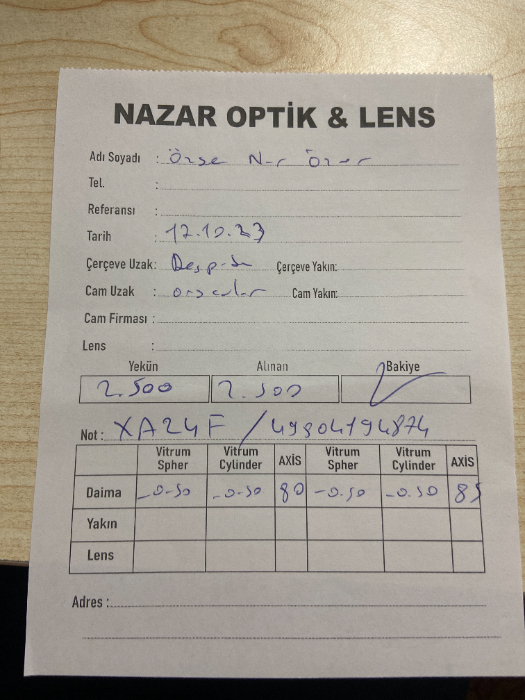 NAZAR OPTİK & LENS
Adı Soyadı : Özge Nur
Tel. :
Referansı :
Tarih : 12.10.23
Çerçeve Uzak: Çerçeve Yakın:
Cam Uzak : Cam Yakın:
Cam Firması :
Lens :
Yekün Alınan Bakiye
2.500 2.500
Not : XA24F / 49304194874
Vitrum Spher Vitrum Cylinder AXİS Vitrum Spher Vitrum Cylinder AXİS
Daima -0.50 -0.50 80 -0.50 -0.50 85
Yakın
Lens
Adres :